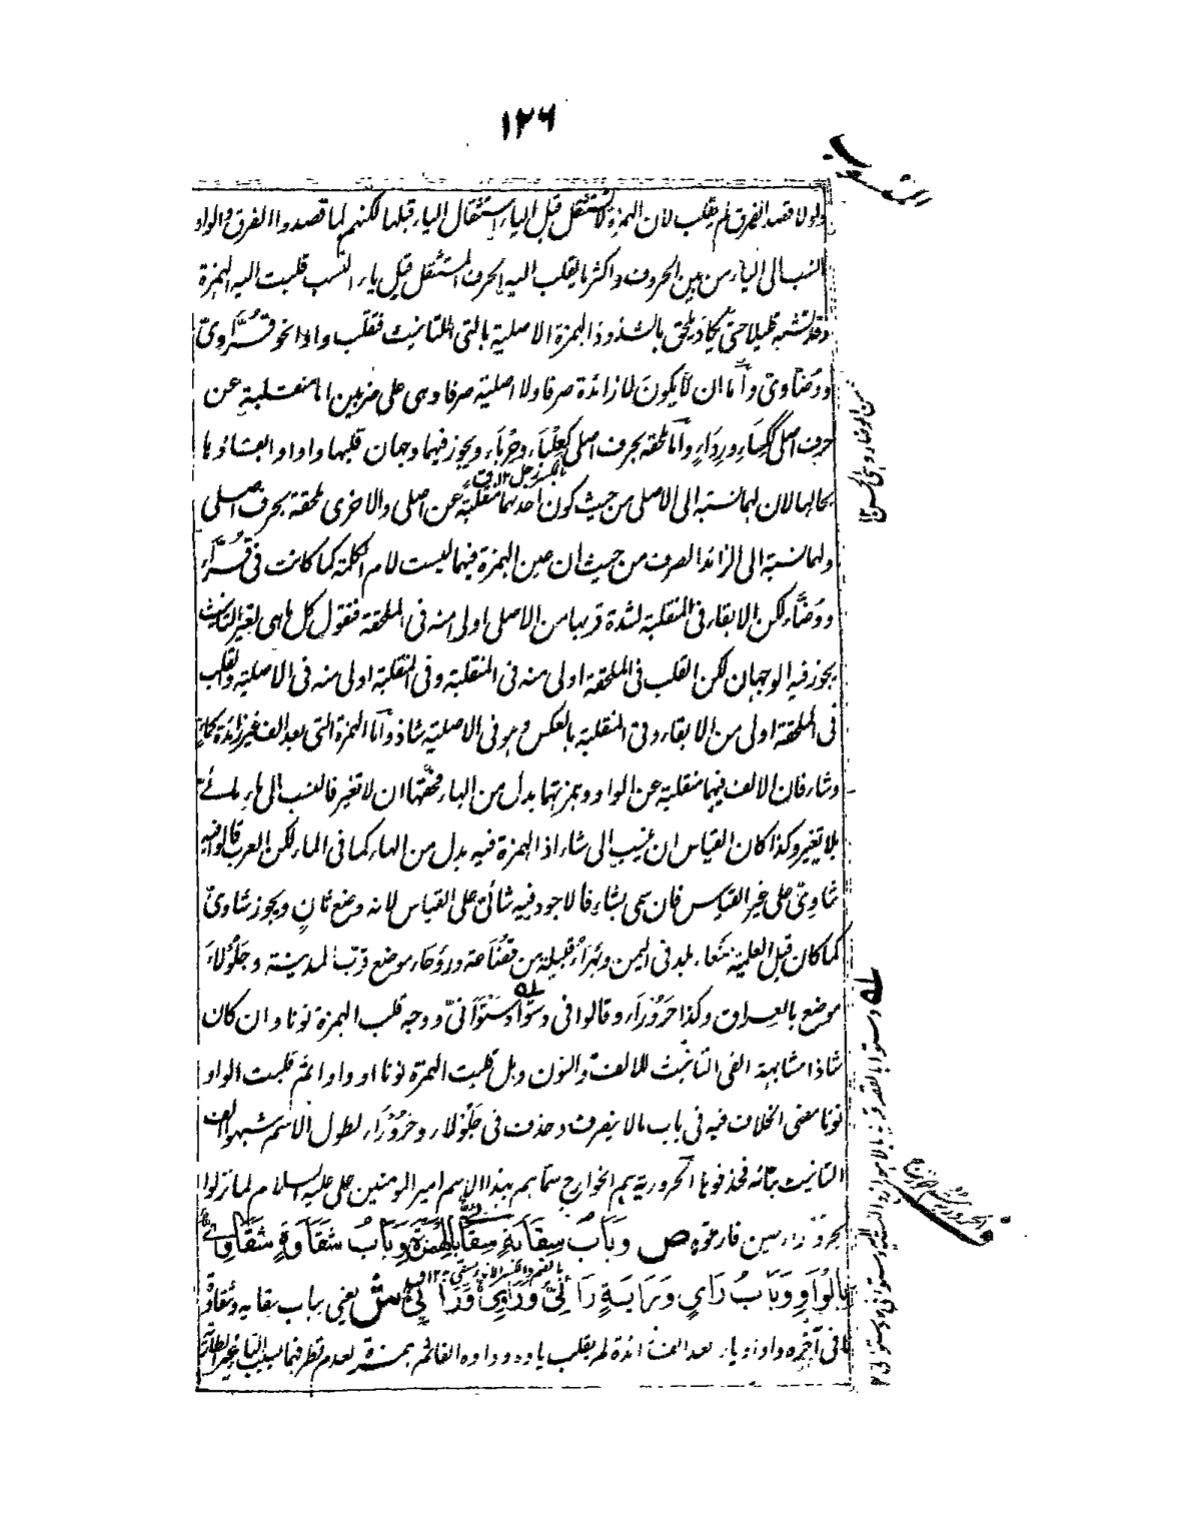 ١٢٦
ولولا قصد الفرق لم يقلب لان الهمزة لا تستثقل قبل الياء استثقال الياء قبلها لكنهم لما قصدوا الفرق والواو
انسب الى الياء من بين الحروف واكثر ما يقلب اليه الحرف المستثقل قبل ياء النسب قلبت اليه الهمزة
وقد تشبه قليلا حتى يكاد يلحق بالشذوذ الهمزة الاصلية بالتى للتانيث فتقلب واوا نحو قُرَّاوىّ
ووُضّاوىّ وأما ان لا يكون لا زائدة صرفا ولا اصلية صرفا وهى على ضربين اما منقلبة عن
حرف اصلى ككِساء ورِداء وأما ملحقة بحرف اصلى كعِلْباء وحِرْباء ويجوز فيهما وجهان قلبها واوا وابقاؤها
بحالها لان لهما نسبة الى الاصلى من حيث كون احدهما منقلبة عن اصلى والاخرى ملحقة بحرف اصلى
ولهما نسبة الى الزائد الصرف من حيث ان عين الهمزة فيهما ليست لام الكلمة كما كانت فى قُرَّاء
ووُضّاء لكن الابقاء فى المنقلبة لشدة قربها من الاصلى اولى منه فى الملحقة فنقول كل ما هى لغير التانيث
يجوز فيه الوجهان لكن القلب فى الملحقة اولى منه فى المنقلبة وفى المنقلبة اولى منه فى الاصلية والقلب
فى الملحقة اولى من الابقاء وفى المنقلبة بالعكس وهو فى الاصلية شاذ وأما الهمزة التى بعد الف غير زائدة كماءٍ
وشاء فان الالف فيهما منقلبة عن الواو وهمزتها بدل من الهاء فحقها ان لا تغير فالنسب الى ماء مائىّ
بلا تغير وكذا كان القياس ان ينسب الى شاء اذ الهمزة فيه بدل من الهاء كما فى الماء لكن العرب قالوا فيه
شاوىّ على غير القياس فان سمى بشاء فالاجود فيه شائىّ على القياس لانه وضع ثان ويجوز شاوىّ
كما كان قبل العلمية صنعاء بلد فى اليمن وبهراء قبيلة من قضاعة وروحاء موضع قرب المدينة وجَلُولاء
موضع بالعراق وكذا حَرُوراء وقالوا فى دستواء دستوانىّ ووجه قلب الهمزة نونا وان كان
شاذا مشابهة الفى التانيث للالف والنون وهل قلبت الهمزة نونا او واوا ثم قلبت الواو
نونا مضى الخلاف فيه فى باب مالا ينصرف وحذفت فى جلولاء وحروراء لطول الاسم شبهوا الف
التانيث بتائه فحذفوها الحرورية هم الخوارج سماهم بهذا الاسم امير المومنين على عليه السلام لما نزلوا
بحروراء حين فارقوه ص وَبَابُ سِقَايَةٍ سِقَائِىٌّ بِالْهَمْزَةِ وَبَابُ شَقَاوَةٍ شَقَاوِىٌّ
بِالْوَاوِ وَبَابُ رَاىٍ وَرَايَةٍ رَائِىٌّ وَرَايِىٌّ وَرَاوِىٌّ ش يعنى بباب سقايه وشقاوة
ما فى آخره واو او ياء بعد الف زائدة لم يقلب ياؤه وواوه الفا ثم همزة لعدم تطرفهما بسبب التاء غير الطارية